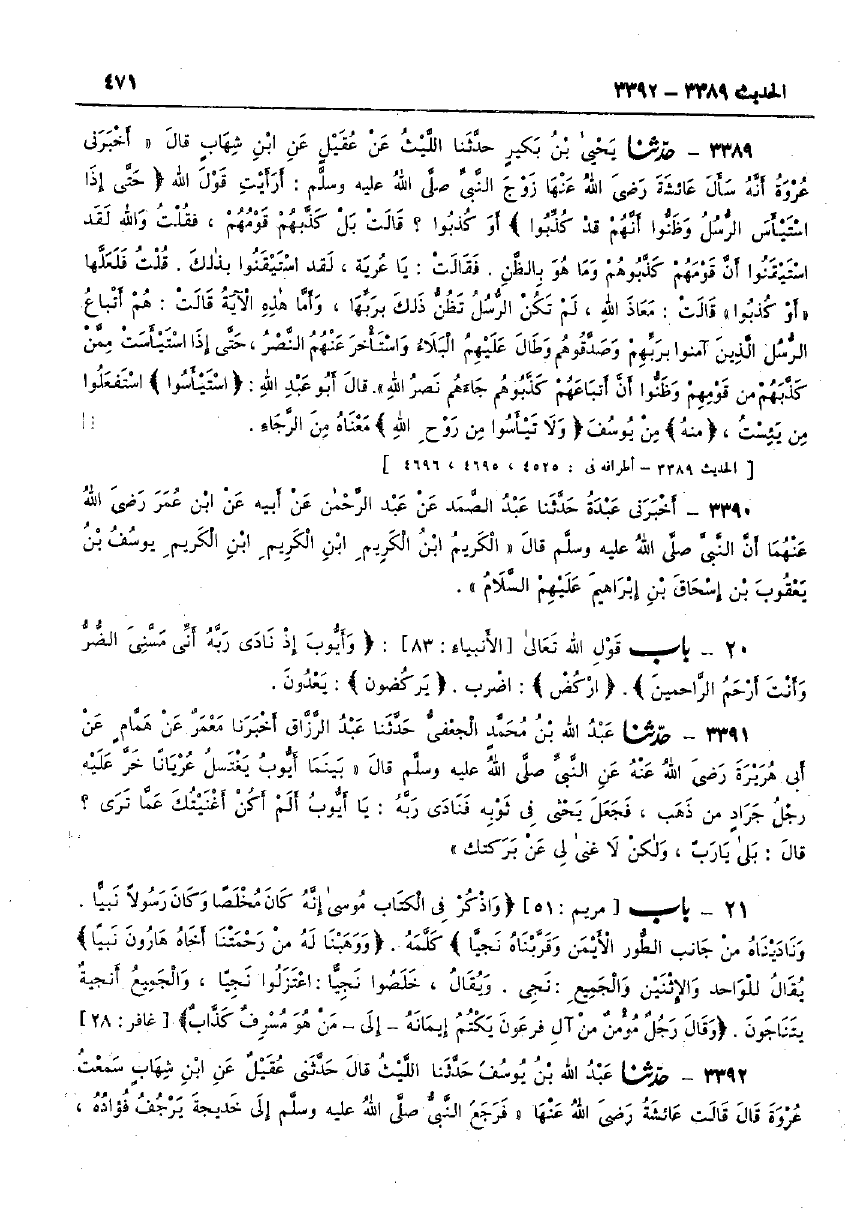 الحديث ٣٣٨٩ – ٣٣٩٢
٤٧١
٣٣٨٩ – حدّثنا يَحْيىٰ بْنُ بَكيرٍ حدَّثَنا اللَّيْثُ عَنْ عُقَيْلٍ عَنِ ابْنِ شِهَابٍ قالَ « أَخْبَرَنى
عُرْوَةُ أَنَّهُ سَأَلَ عَائشَةَ رَضىَ اللهُ عَنْهَا زَوْجَ النَّبىِّ صلَّى اللهُ عليه وسلَّم : أَرَأَيْتِ قَوْلَ الله ﴿ حَتَّى إِذَا
اسْتَيْأَسَ الرُّسُلُ وَظَنُّوا أَنَّهُمْ قدْ كُذِّبُوا ﴾ أَوْ كُذِبُوا ؟ قَالَتْ بَلْ كَذَّبَهُمْ قَوْمُهُمْ ، فقُلْتُ وَالله لَقَد
اسْتَيْقَنُوا أَنَّ قَوْمَهُمْ كَذَّبُوهُمْ وَمَا هُوَ بِالظَّنِ . فَقَالَتْ : يَا عُرَيَة ، لَقد اسْتَيْقَنُوا بذٰلكَ . قُلْتُ فَلَعَلَّها
«أَوْ كُذبُوا» قَالَتْ : مَعَاذَ اللهِ ، لَمْ تَكُنْ الرُّسُلُ تَظُنُّ ذَلكَ بِرَبِّهَا ، وَأَمَّا هٰذِهِ الْآيَةُ قَالَتْ : هُمْ أَتْباعُ
الرُّسُلِ الَّذينَ آمنوا بِرَبِّهِمْ وَصَدَّقُوهُم وَطَالَ عَلَيْهِمُ الْبَلَاءُ وَاسْتَأْخرَ عَنْهُمُ النَّصْرُ ، حَتَّى إِذَا اسْتَيْأَسَتْ مِمَّنْ
كَذَّبَهُمْ من قَومِهِمْ وَظَنُّوا أَنَّ أَتباعَهُمْ كَذَّبُوهُم جَاءَهُم نَصرُ اللهِ». قالَ أَبو عَبْدِ اللهِ : ﴿ اسْتَيْأَسُوا ﴾ اسْتَفعَلُوا
مِن يَئِسْتُ ، ﴿ منهُ ﴾ مِنْ يُوسُفَ ﴿ وَلَا تَيْأَسُوا مِن رَوْحِ اللهِ ﴾ مَعْنَاهُ مِنَ الرَّجَاءِ .
[ الحديث ٣٣٨٩ – أطرافه فى : ٤٥٢٥ ، ٤٦٩٥ ، ٤٦٩٦ ]
٣٣٩٠ – أَخبَرَنى عَبْدَةُ حَدَّثَنا عَبْدُ الصَّمَد عَنْ عَبْد الرَّحْمٰن عَنْ أَبيه عَنْ ابْن عُمَرَ رَضىَ اللهُ
عَنْهُمَا أَنَّ النَّبىَّ صلَّى اللهُ عليه وسلَّم قالَ « الْكَرِيمُ ابْنُ الْكَرِيمِ ابْنِ الْكَرِيمِ ابْنِ الْكَرِيمِ يوسُفُ بْنُ
يَعْقُوبَ بْن إِسْحَاقَ بْنِ إِبْراهيمَ عَلَيْهِمْ السَّلَامُ » .
٢٠ – باب قَوْلِ الله تَعَالىٰ [ الأَنبياء : ٨٣] : ﴿ وَأَيُّوبَ إِذْ نَادَى رَبَّهُ أَنِّى مَسَّنِىَ الضُّرُّ
وَأَنْتَ أَرْحَمُ الرَّاحمينَ ﴾ . ﴿ ارْكُضْ ﴾ : اضْرِب . ﴿ يَركُضُون ﴾ : يَعْدُونَ .
٣٣٩١ – حدّثنا عَبْدُ الله بْنُ مُحَمَّدٍ الْجعفىُّ حَدَّثَنا عَبدُ الرَّزَّاق أَخبَرَنا مَعْمَرٌ عَنْ هَمَّامٍ عَنْ
أَبى هُرَيْرَةَ رَضىَ اللهُ عَنْهُ عَنِ النَّبىِّ صلَّى اللهُ عليه وسلَّم قالَ « بَينَمَا أَيُّوبُ يَغْتَسلُ عُرْيَانًا خَرَّ عَلَيْه
رجْلُ جَرَادٍ من ذَهَب ، فَجعَلَ يَحْثى فى ثَوْبِه فَنَادَى رَبَّهُ : يَا أَيُّوبُ أَلَمْ أَكُنْ أَغْنَيْتُكَ عَمَّا تَرَى ؟
قالَ : بَلىٰ يَارَبِّ ، وَلٰكنْ لَا غنىٰ لى عَنْ بَرَكتك »
٢١ – باب [ مريم : ٥١] ﴿وَاذْكُرْ فى الْكتَاب مُوسىٰ إِنَّهُ كَانَ مُخْلَصًا وَكَانَ رَسُولاً نَبيًّا .
وَنَادَيْنَاهُ منْ جَانب الطُّور الْأَيْمَن وَقَرَّبْنَاهُ نَجيًّا ﴾ كَلَّمَهُ . ﴿وَوَهَبْنَا لَهُ منْ رَحْمَتنَا أَخَاهُ هَارُونَ نَبيًا﴾
يُقَالُ للْوَاحد وَالإِثْنَيْن وَالْجَميع : نَجى . وَيُقَالُ ، خَلَصُوا نَجيًّا : اعْتَزَلُوا نَجيًا ، وَالْجَميعُ أَنجيةٌ
يتَنَاجَونَ . ﴿وَقَالَ رَجُلٌ مُؤْمنٌ منْ آلِ فرعَونَ يَكْتُمُ إِيمَانَهُ – إِلَى – مَنْ هُوَ مُسْرِفٌ كَذَّابٌ﴾ [ غافر : ٢٨ ]
٣٣٩٢ – حدّثنا عَبْدُ الله بْنُ يُوسُفَ حَدَّثَنا اللَّيْثُ قالَ حَدَّثَنى عُقَيْلٌ عَنِ ابْنِ شِهَابٍ سَمعْتُ
عُرْوَةَ قَالَ قَالَت عَائشَةُ رَضىَ اللهُ عَنْهَا « فَرَجَعَ النَّبىُّ صلَّى اللهُ عليه وسلَّم إِلَى خَديجةَ يَرْجُفُ فُؤَادُهُ ،